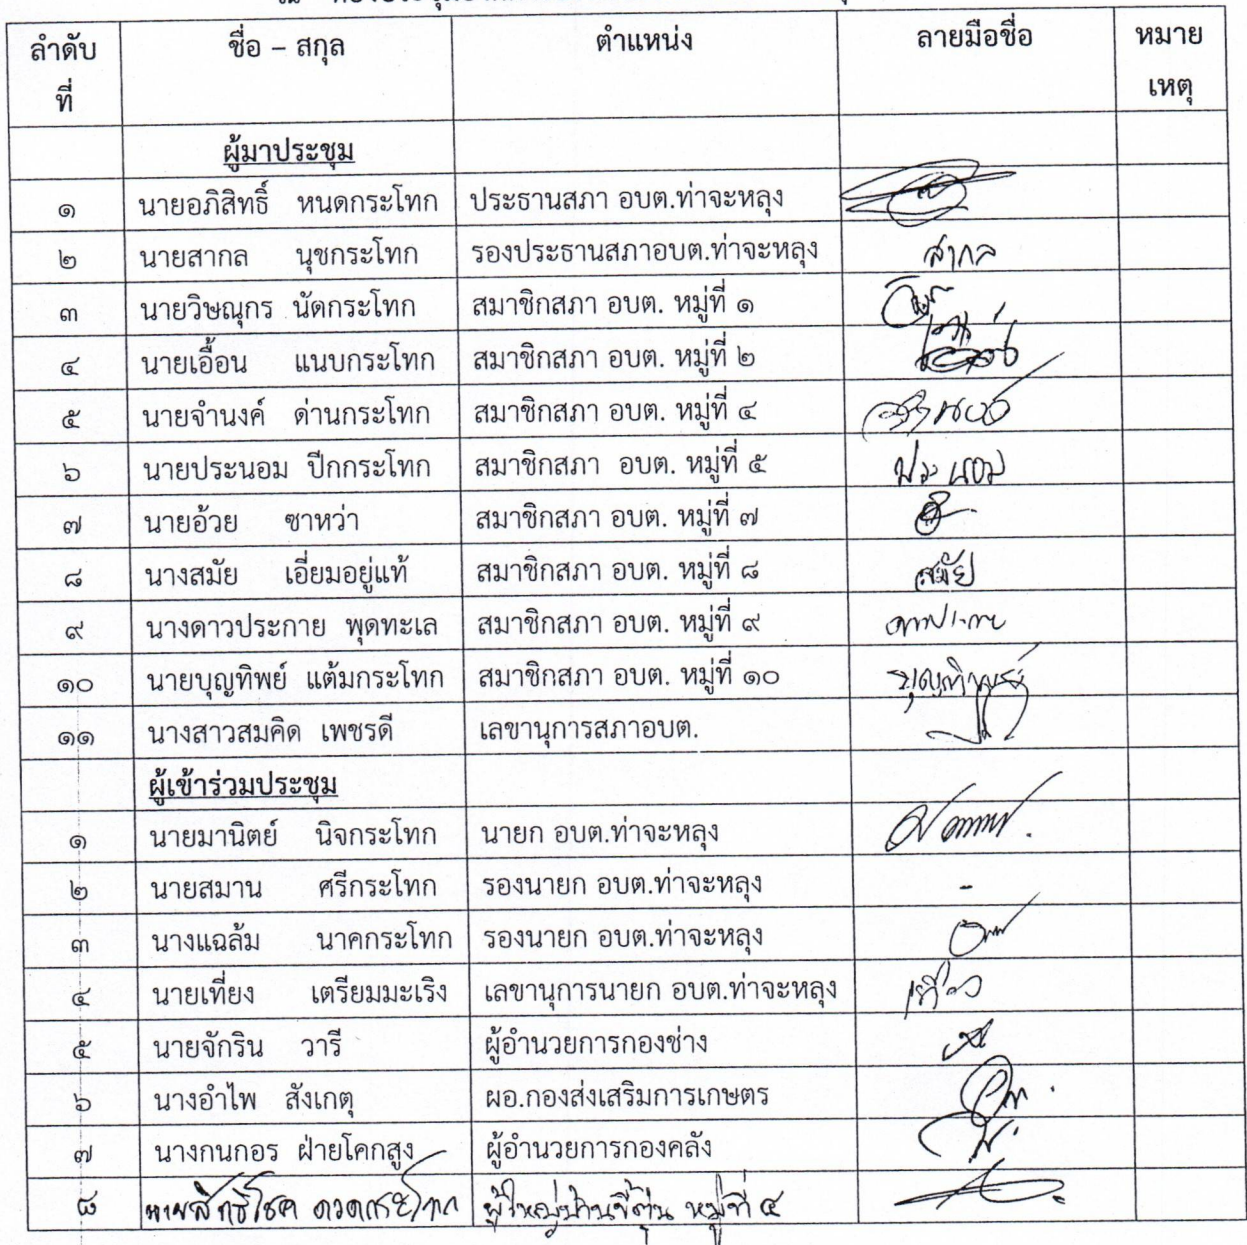 ลำดับที่ ชื่อ – สกุล ตำแหน่ง ลายมือชื่อ หมายเหตุ
ผู้มาประชุม
๑ นายอภิสิทธิ์ หนดกระโทก ประธานสภา อบต.ท่าจะหลุง
๒ นายสากล นุชกระโทก รองประธานสภาอบต.ท่าจะหลุง สากล
๓ นายวิษณุกร นัดกระโทก สมาชิกสภา อบต. หมู่ที่ ๑
๔ นายเอื้อน แนบกระโทก สมาชิกสภา อบต. หมู่ที่ ๒
๕ นายจำนงค์ ด่านกระโทก สมาชิกสภา อบต. หมู่ที่ ๔
๖ นายประนอม ปึกกระโทก สมาชิกสภา อบต. หมู่ที่ ๕ ประนอม
๗ นายอ้วย ซาหว่า สมาชิกสภา อบต. หมู่ที่ ๗
๘ นางสมัย เอี่ยมอยู่แท้ สมาชิกสภา อบต. หมู่ที่ ๘ สมัย
๙ นางดาวประกาย พุดทะเล สมาชิกสภา อบต. หมู่ที่ ๙
๑๐ นายบุญทิพย์ แต้มกระโทก สมาชิกสภา อบต. หมู่ที่ ๑๐ บุญทิพย์
๑๑ นางสาวสมคิด เพชรดี เลขานุการสภาอบต.
ผู้เข้าร่วมประชุม
๑ นายมานิตย์ นิจกระโทก นายก อบต.ท่าจะหลุง
๒ นายสมาน ศรีกระโทก รองนายก อบต.ท่าจะหลุง -
๓ นางแฉล้ม นาคกระโทก รองนายก อบต.ท่าจะหลุง
๔ นายเที่ยง เตรียมมะเริง เลขานุการนายก อบต.ท่าจะหลุง
๕ นายจักริน วารี ผู้อำนวยการกองช่าง
๖ นางอำไพ สังเกตุ ผอ.กองส่งเสริมการเกษตร
๗ นางกนกอร ฝ่ายโคกสูง ผู้อำนวยการกองคลัง
๘ นายสิทธิโชค ดวดกระโทก ผู้ใหญ่บ้านขี้ตุ่น หมู่ที่ ๕